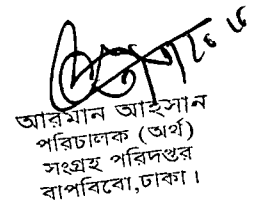 আরমান আহসান
পরিচালক (অর্থ)
সংগ্রহ পরিদপ্তর
বাপবিবো,ঢাকা।